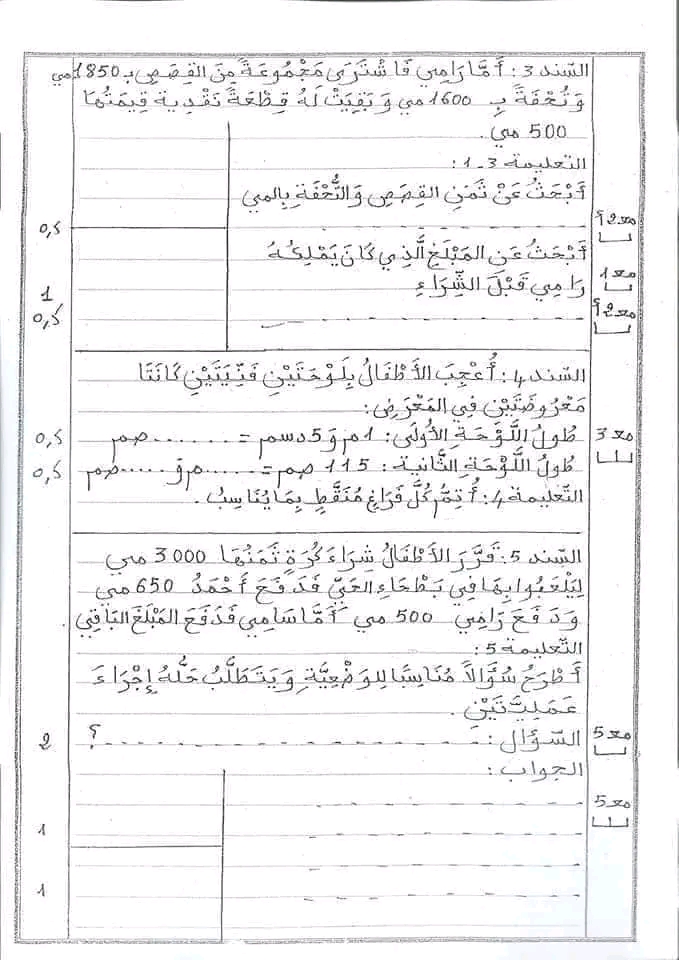 السّند 3 : أَمَّا رَامِي فَاشْتَرَى مَجْمُوعَةً مِنَ القِصَصِ بـ 1850 مي
وَتُحْفَةً بِـ 1600 مي وَبَقِيَتْ لَهُ قِطْعَةٌ نَقْدِيَة قِيمَتُهَا
500 مي.
التعليمة 3-1 :
أَبْحَثُ عَنْ ثَمَنِ القِصَصِ وَالتُّحْفَةِ بِالمي
مع2أ
0,5
أَبْحَثُ عَنِ المَبْلَغِ الَّذِي كَانَ يَمْلِكُهُ
رَامِي قَبْلَ الشِّرَاءِ
مع1
1
مع2أ
0,5
السّند 4 : أُعْجِبَ الأَطْفَالُ بِلَوْحَتَيْنِ فَنِّيَتَيْنِ كَانَتَا
مَعْرُوضَتَيْنِ فِي المَعْرَضِ :
طُولُ اللَّوْحَةِ الأُولَى : 1م و 5 دسم = ........ صم
مع3
0,5
طُولُ اللَّوْحَةِ الثَّانِيَة : 115 صم = ...... م و ...... صم
0,5
التّعليمة 4 : أُتِمُّ كُلَّ فَرَاغٍ مُنَقَّطٍ بِمَا يُنَاسِبُ .
السّند 5 : قَرَّرَ الأَطْفَالُ شِرَاءَ كُرَةٍ ثَمَنُهَا 3000 مي
لِيَلْعَبُوا بِهَا فِي بَطْحَاءِ الحَيِّ فَدَفَعَ أَحْمَدُ 650 مي
وَدَفَعَ رَامِي 500 مي أَمَّا سَامِي فَدَفَعَ المَبْلَغَ البَاقِي
التّعليمة 5 :
أَطْرَحُ سُؤَالاً مُنَاسِبًا لِلوَضْعِيَّةِ وَيَتَطَلَّبُ حَلُّهُ إِجْرَاءَ
عَمَلِيَّتَيْنِ .
السّؤال : - - - - - - - - - - ؟
مع5
2
الجواب :
مع5
1
1